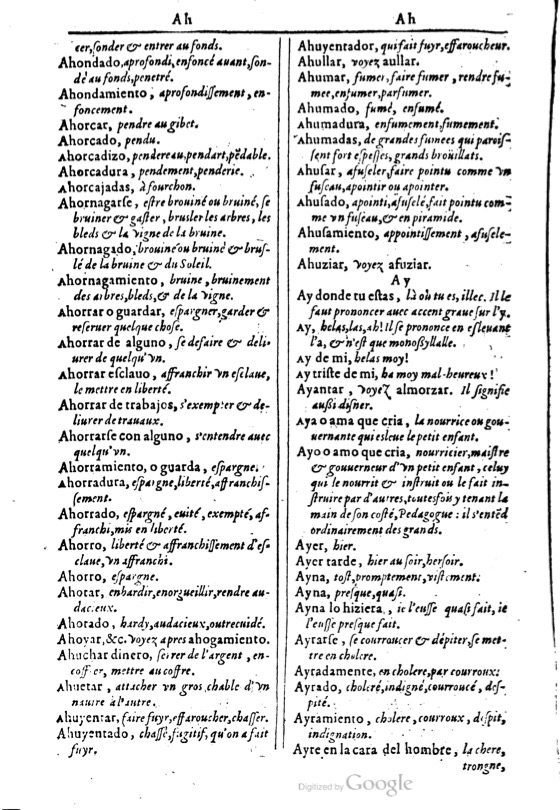 Ah
cer, sonder & entrer au fonds.
Ahondado, aprofondi, enfoncé auant, son-
dé au fonds, penetré.
Ahondamiento, aprofondissement, en-
foncement.
Ahorcar, pendre au gibet.
Ahorcado, pendu.
Ahorcadizo, pendereau, pendart, pẽdable.
Ahorcadura, pendement, penderie.
Ahorcajadas, à fourchon.
Ahornagarse, estre brouiné ou bruiné, se
bruiner & gaster, brusler les arbres, les
bleds & la vigne de la bruine.
Ahornagado, brouiné ou bruiné & brus-
lé de la bruine & du Soleil.
Ahornagamiento, bruine, bruinement
des arbres, bleds, & de la vigne.
Ahorrar o guardar, espargner, garder &
reseruer quelque chose.
Ahorrar de alguno, se desaire & deli-
urer de quelqu'vn.
Ahorrar esclauo, affranchir vn esclaue,
le mettre en liberté.
Ahorrar de trabajos, s'exempter & de-
liurer de trauaux.
Ahorrarse con alguno, s'entendre auec
quelqu'vn.
Ahorramiento, o guarda, espargne.
Ahorradura, espargne, liberté, affranchis-
sement.
Ahorrado, espargné, euité, exempté, af-
franchi, mis en liberté.
Ahorro, liberté & affranchissement d'es-
claue, vn affranchi.
Ahorro, espargne.
Ahotar, enhardir, enorgueillir, rendre au-
dacieux.
Ahotado, hardy, audacieux, outrecuidé.
Ahoyar, &c. voyez apres ahogamiento.
Ahuchar dinero, serrer de l'argent, en-
coffrer, mettre au coffre.
Ahuetar, attacher vn gros chable d'vn
nauire à l'autre.
Ahuyentar, faire fuyr, effaroucher, chasser.
Ahuyentado, chassé, fugitif, qu'on a fait
fuyr.
Ah
Ahuyentador, qui fait fuyr, effaroucheur.
Ahullar, voyez aullar.
Ahumar, fumer, faire fumer, rendre fu-
mee, enfumer, parfumer.
Ahumado, fumé, enfumé.
Ahumadura, enfumement, fumement.
Ahumadas, de grandes fumees qui parois-
sent fort espesses, grands brouillats.
Ahusar, afuseler, faire pointu comme vn
fuseau, apointir ou apointer.
Ahusado, apointi, afuselé, fait pointu com-
me vn fuseau, & en piramide.
Ahusamiento, appointissement, afusele-
ment.
Ahuziar, voyez afuziar.
Ay
Ay donde tu estas, là où tu es, illec. Il le
faut prononcer auec accent graue sur l'y.
Ay, helas, las, ah! Il se prononce en esleuant
l'a, & n'est que monosyllalle.
Ay de mi, helas moy!
Ay triste de mi, ha moy mal-heureux!
Ayantar, voyez almorzar. Il signifie
aussi disner.
Aya o ama que cria, la nourrice ou gou-
uernante qui esleue le petit enfant.
Ayo o amo que cria, nourricier, maistre
& gouuerneur d'vn petit enfant, celuy
qui le nourrit & instruit ou le fait in-
struire par d'autres, toutesfois y tenant la
main de son costé, Pedagogue : il s'entẽd
ordinairement des grands.
Ayer, hier.
Ayer tarde, hier au soir, hersoir.
Ayna, tost, promptement, vistement.
Ayna, presque, quasi.
Ayna lo hiziera, ie l'eusse quasi fait, ie
l'eusse presque fait.
Ayrarse, se courroucer & dépiter, se met-
tre en cholere.
Ayradamente, en cholere, par courroux.
Ayrado, choleré, indigné, courroucé, des-
pité.
Ayramiento, cholere, courroux, despit,
indignation.
Ayre en la cara del hombre, la chere,
trongne,
Digitized by Google